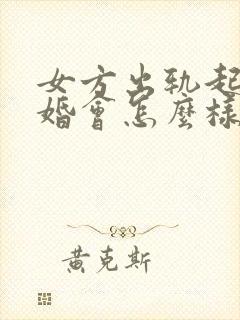 女方出軌起
婚會怎麼樣
黃克斯